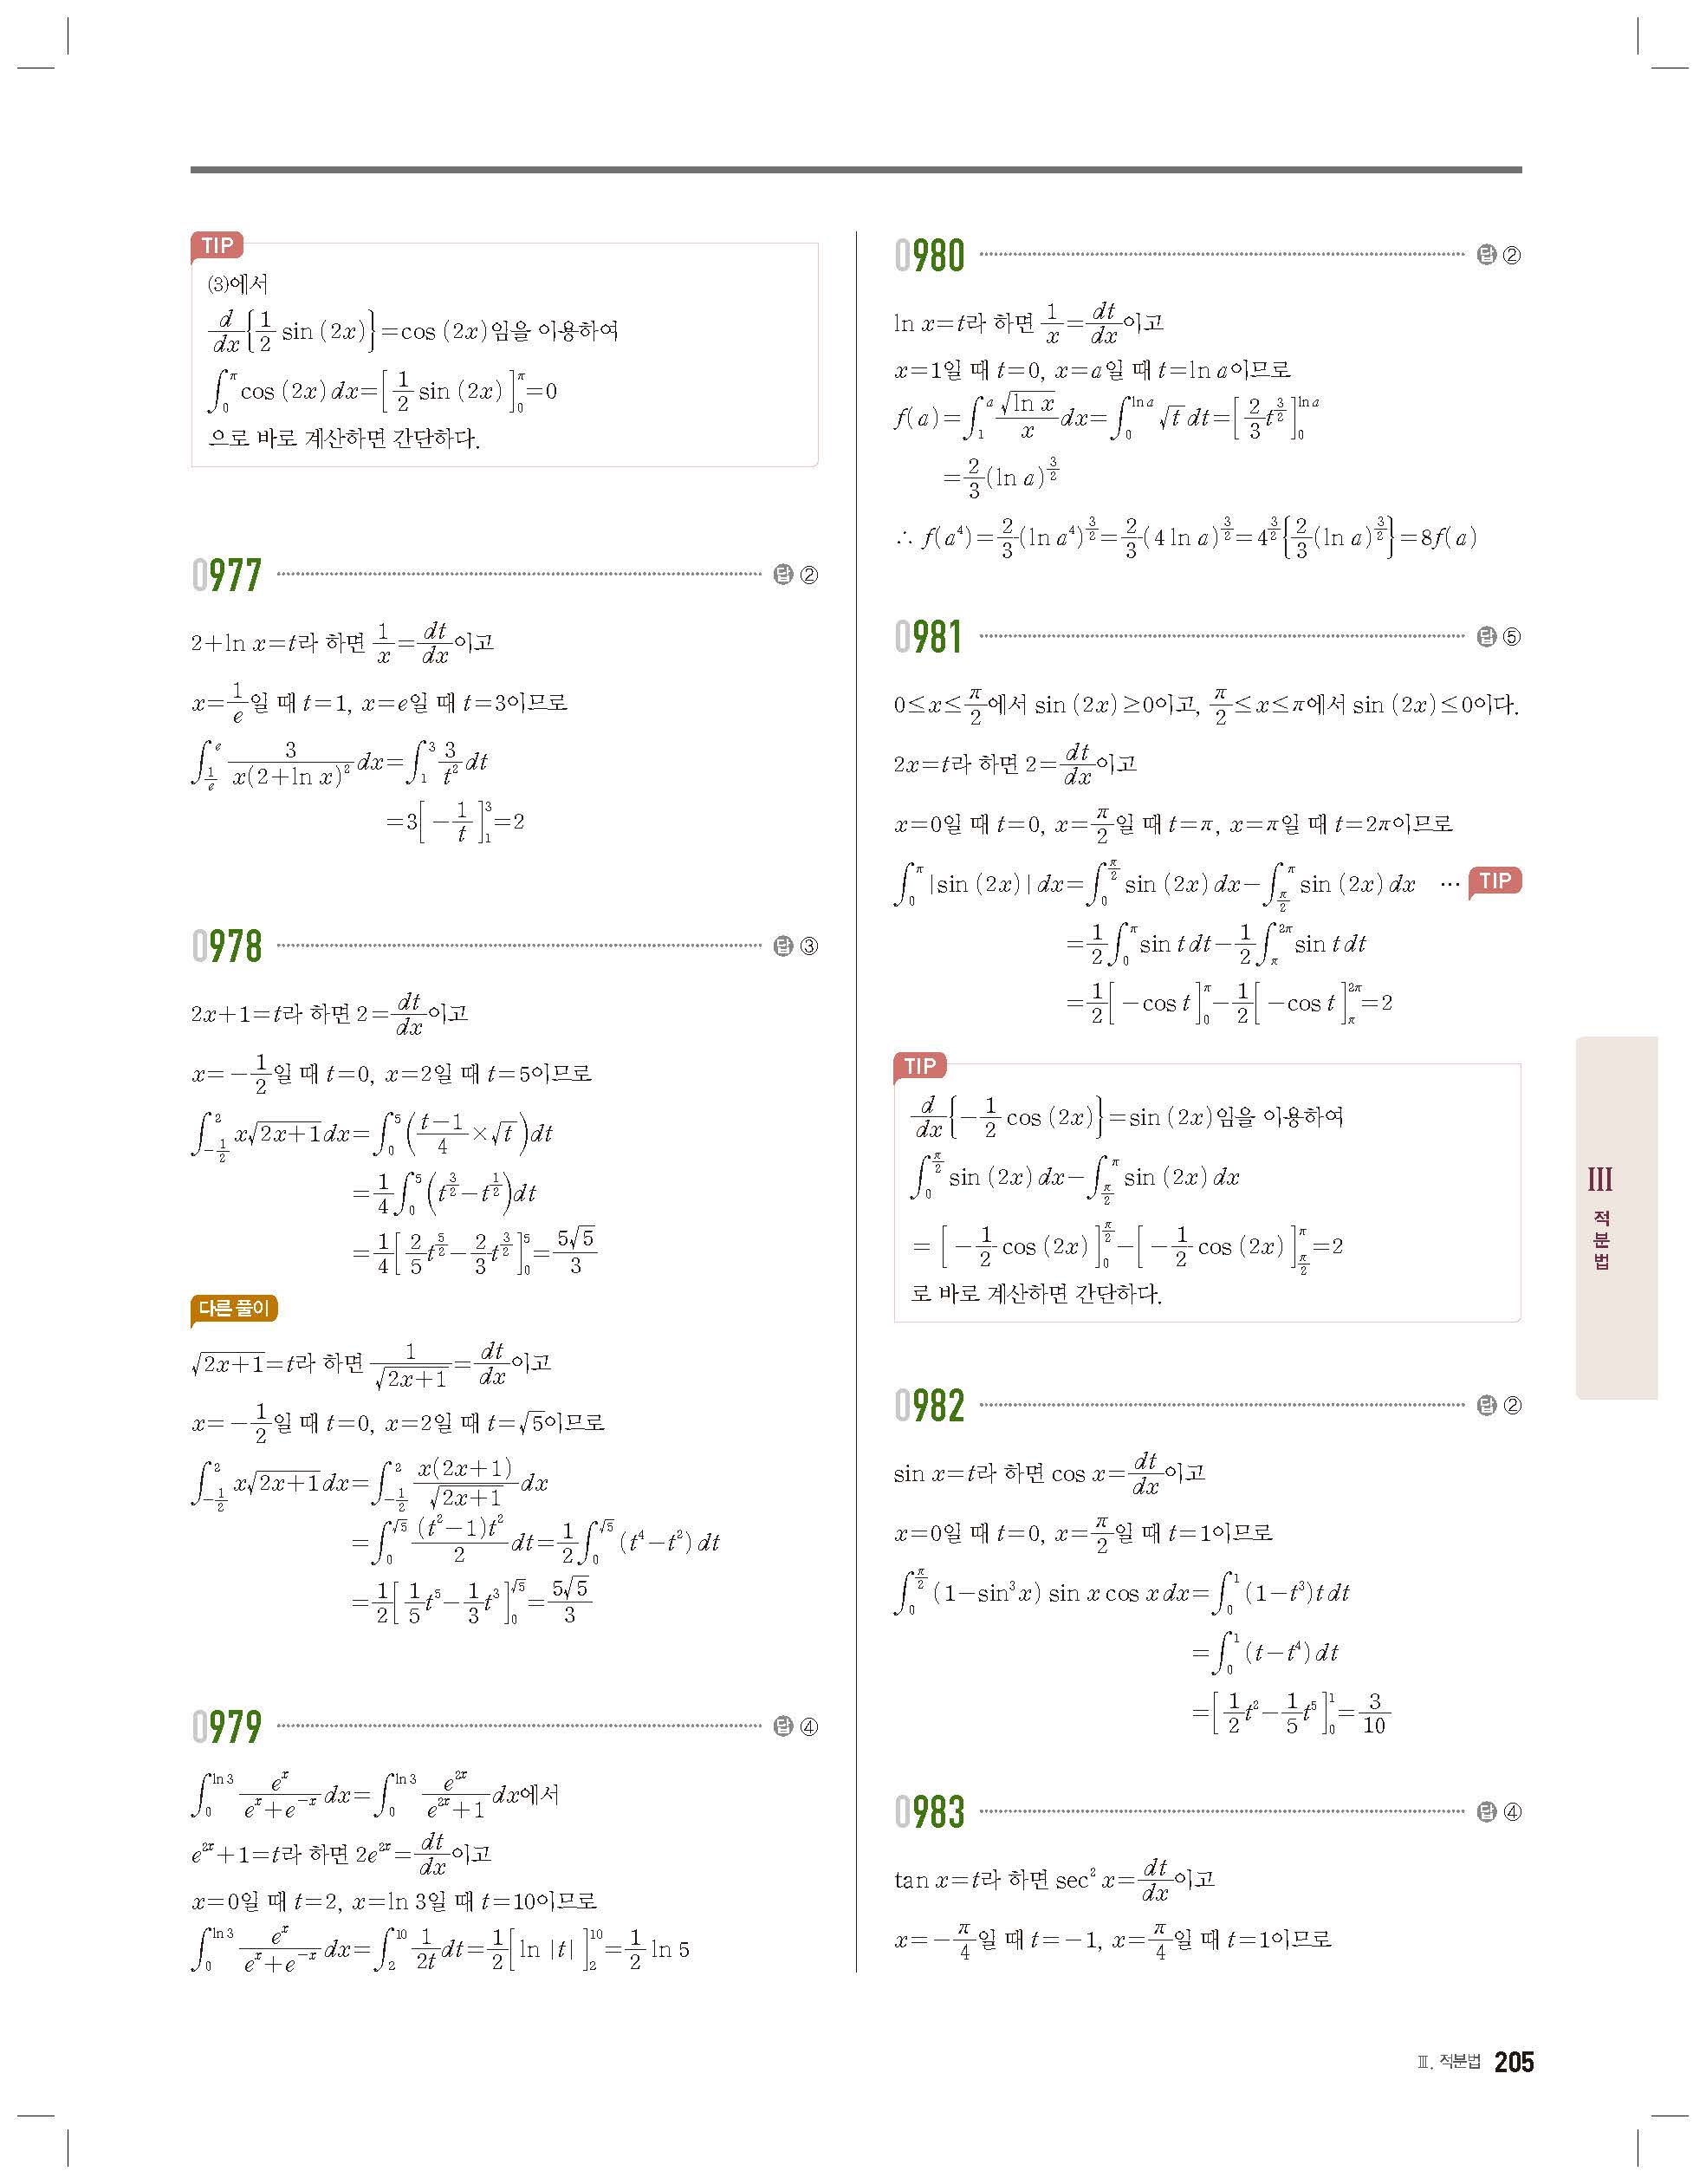 TIP
(3)에서
$\frac{d}{dx}\left\{\frac{1}{2}\sin(2x)\right\}=\cos(2x)$임을 이용하여
$\int_{0}^{\pi}\cos(2x)dx=\left[\frac{1}{2}\sin(2x)\right]_{0}^{\pi}=0$
으로 바로 계산하면 간단하다.
0977 답 ②
$2+\ln x=t$라 하면 $\frac{1}{x}=\frac{dt}{dx}$이고
$x=\frac{1}{e}$일 때 $t=1$, $x=e$일 때 $t=3$이므로
$\int_{\frac{1}{e}}^{e}\frac{3}{x(2+\ln x)^2}dx=\int_{1}^{3}\frac{3}{t^2}dt$
$=3\left[-\frac{1}{t}\right]_{1}^{3}=2$
0978 답 ③
$2x+1=t$라 하면 $2=\frac{dt}{dx}$이고
$x=-\frac{1}{2}$일 때 $t=0$, $x=2$일 때 $t=5$이므로
$\int_{-\frac{1}{2}}^{2}x\sqrt{2x+1}dx=\int_{0}^{5}\left(\frac{t-1}{4}\times\sqrt{t}\right)dt$
$=\frac{1}{4}\int_{0}^{5}\left(t^{\frac{3}{2}}-t^{\frac{1}{2}}\right)dt$
$=\frac{1}{4}\left[\frac{2}{5}t^{\frac{5}{2}}-\frac{2}{3}t^{\frac{3}{2}}\right]_{0}^{5}=\frac{5\sqrt{5}}{3}$
다른 풀이
$\sqrt{2x+1}=t$라 하면 $\frac{1}{\sqrt{2x+1}}=\frac{dt}{dx}$이고
$x=-\frac{1}{2}$일 때 $t=0$, $x=2$일 때 $t=\sqrt{5}$이므로
$\int_{-\frac{1}{2}}^{2}x\sqrt{2x+1}dx=\int_{-\frac{1}{2}}^{2}\frac{x(2x+1)}{\sqrt{2x+1}}dx$
$=\int_{0}^{\sqrt{5}}\frac{(t^2-1)t^2}{2}dt=\frac{1}{2}\int_{0}^{\sqrt{5}}(t^4-t^2)dt$
$=\frac{1}{2}\left[\frac{1}{5}t^5-\frac{1}{3}t^3\right]_{0}^{\sqrt{5}}=\frac{5\sqrt{5}}{3}$
0979 답 ④
$\int_{0}^{\ln 3}\frac{e^x}{e^x+e^{-x}}dx=\int_{0}^{\ln 3}\frac{e^{2x}}{e^{2x}+1}dx$에서
$e^{2x}+1=t$라 하면 $2e^{2x}=\frac{dt}{dx}$이고
$x=0$일 때 $t=2$, $x=\ln 3$일 때 $t=10$이므로
$\int_{0}^{\ln 3}\frac{e^x}{e^x+e^{-x}}dx=\int_{2}^{10}\frac{1}{2t}dt=\frac{1}{2}\left[\ln|t|\right]_{2}^{10}=\frac{1}{2}\ln 5$
0980 답 ②
$\ln x=t$라 하면 $\frac{1}{x}=\frac{dt}{dx}$이고
$x=1$일 때 $t=0$, $x=a$일 때 $t=\ln a$이므로
$f(a)=\int_{1}^{a}\frac{\sqrt{\ln x}}{x}dx=\int_{0}^{\ln a}\sqrt{t}dt=\left[\frac{2}{3}t^{\frac{3}{2}}\right]_{0}^{\ln a}$
$=\frac{2}{3}(\ln a)^{\frac{3}{2}}$
$\therefore f(a^4)=\frac{2}{3}(\ln a^4)^{\frac{3}{2}}=\frac{2}{3}(4\ln a)^{\frac{3}{2}}=4^{\frac{3}{2}}\left\{\frac{2}{3}(\ln a)^{\frac{3}{2}}\right\}=8f(a)$
0981 답 ⑤
$0\le x\le\frac{\pi}{2}$에서 $\sin(2x)\ge 0$이고, $\frac{\pi}{2}\le x\le\pi$에서 $\sin(2x)\le 0$이다.
$2x=t$라 하면 $2=\frac{dt}{dx}$이고
$x=0$일 때 $t=0$, $x=\frac{\pi}{2}$일 때 $t=\pi$, $x=\pi$일 때 $t=2\pi$이므로
$\int_{0}^{\pi}|\sin(2x)|dx=\int_{0}^{\frac{\pi}{2}}\sin(2x)dx-\int_{\frac{\pi}{2}}^{\pi}\sin(2x)dx$ … TIP
$=\frac{1}{2}\int_{0}^{\pi}\sin t\,dt-\frac{1}{2}\int_{\pi}^{2\pi}\sin t\,dt$
$=\frac{1}{2}\left[-\cos t\right]_{0}^{\pi}-\frac{1}{2}\left[-\cos t\right]_{\pi}^{2\pi}=2$
TIP
$\frac{d}{dx}\left\{-\frac{1}{2}\cos(2x)\right\}=\sin(2x)$임을 이용하여
$\int_{0}^{\frac{\pi}{2}}\sin(2x)dx-\int_{\frac{\pi}{2}}^{\pi}\sin(2x)dx$
$=\left[-\frac{1}{2}\cos(2x)\right]_{0}^{\frac{\pi}{2}}-\left[-\frac{1}{2}\cos(2x)\right]_{\frac{\pi}{2}}^{\pi}=2$
로 바로 계산하면 간단하다.
0982 답 ②
$\sin x=t$라 하면 $\cos x=\frac{dt}{dx}$이고
$x=0$일 때 $t=0$, $x=\frac{\pi}{2}$일 때 $t=1$이므로
$\int_{0}^{\frac{\pi}{2}}(1-\sin^3 x)\sin x\cos x\,dx=\int_{0}^{1}(1-t^3)t\,dt$
$=\int_{0}^{1}(t-t^4)dt$
$=\left[\frac{1}{2}t^2-\frac{1}{5}t^5\right]_{0}^{1}=\frac{3}{10}$
0983 답 ④
$\tan x=t$라 하면 $\sec^2 x=\frac{dt}{dx}$이고
$x=-\frac{\pi}{4}$일 때 $t=-1$, $x=\frac{\pi}{4}$일 때 $t=1$이므로
Ⅲ
적분법
Ⅲ. 적분법 205